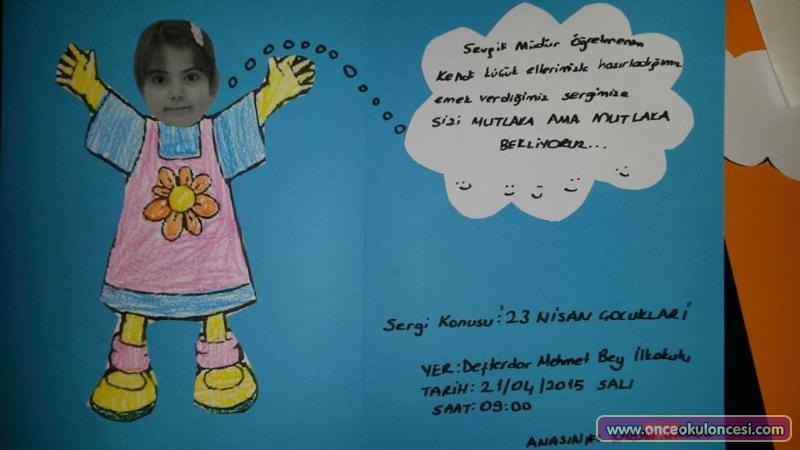 Sevgili Müdür Öğretmenim
küçük ellerimizle hazırladığımız
emek verdiğimiz sergimize
SiZi MUTLAKA AMA MUTLAKA
BEKLiYORUZ...
Sergi Konusu: "23 NiSAN ÇOCUKLARI"
YER: Defterdar Mehmet Bey İlkokulu
TARiH: 21/04/2015 SALI
SAAT: 09:00
ANASINIFI
www.onceokuloncesi.com